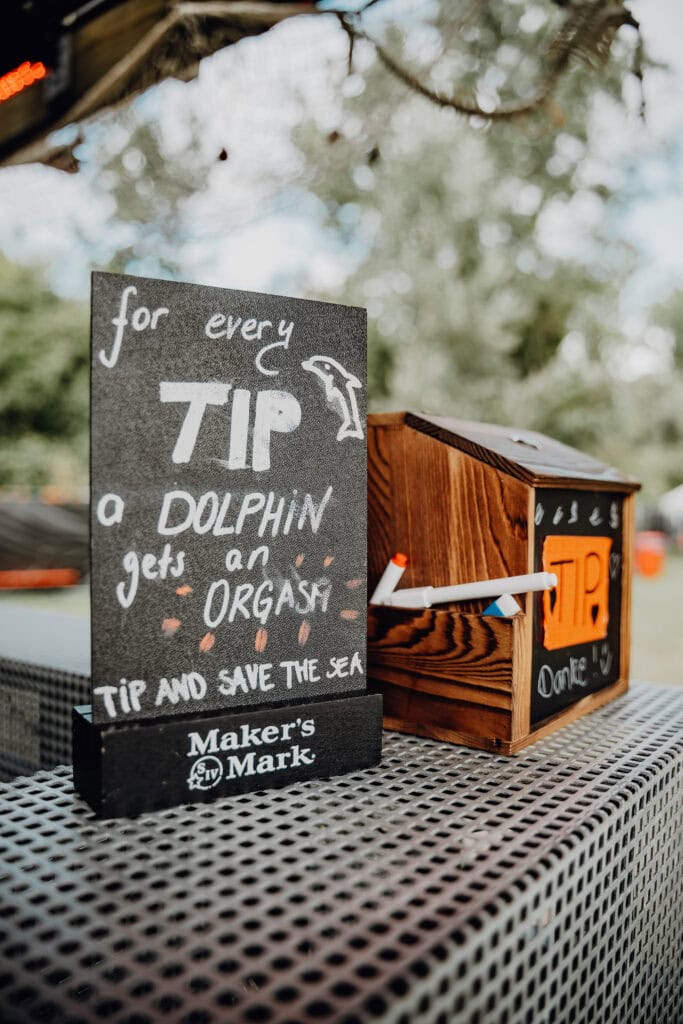 for every
TIP
a DOLPHIN
gets an
ORGASM
TIP AND SAVE THE SEA
Maker's
SIV Mark
TIP
Danke!